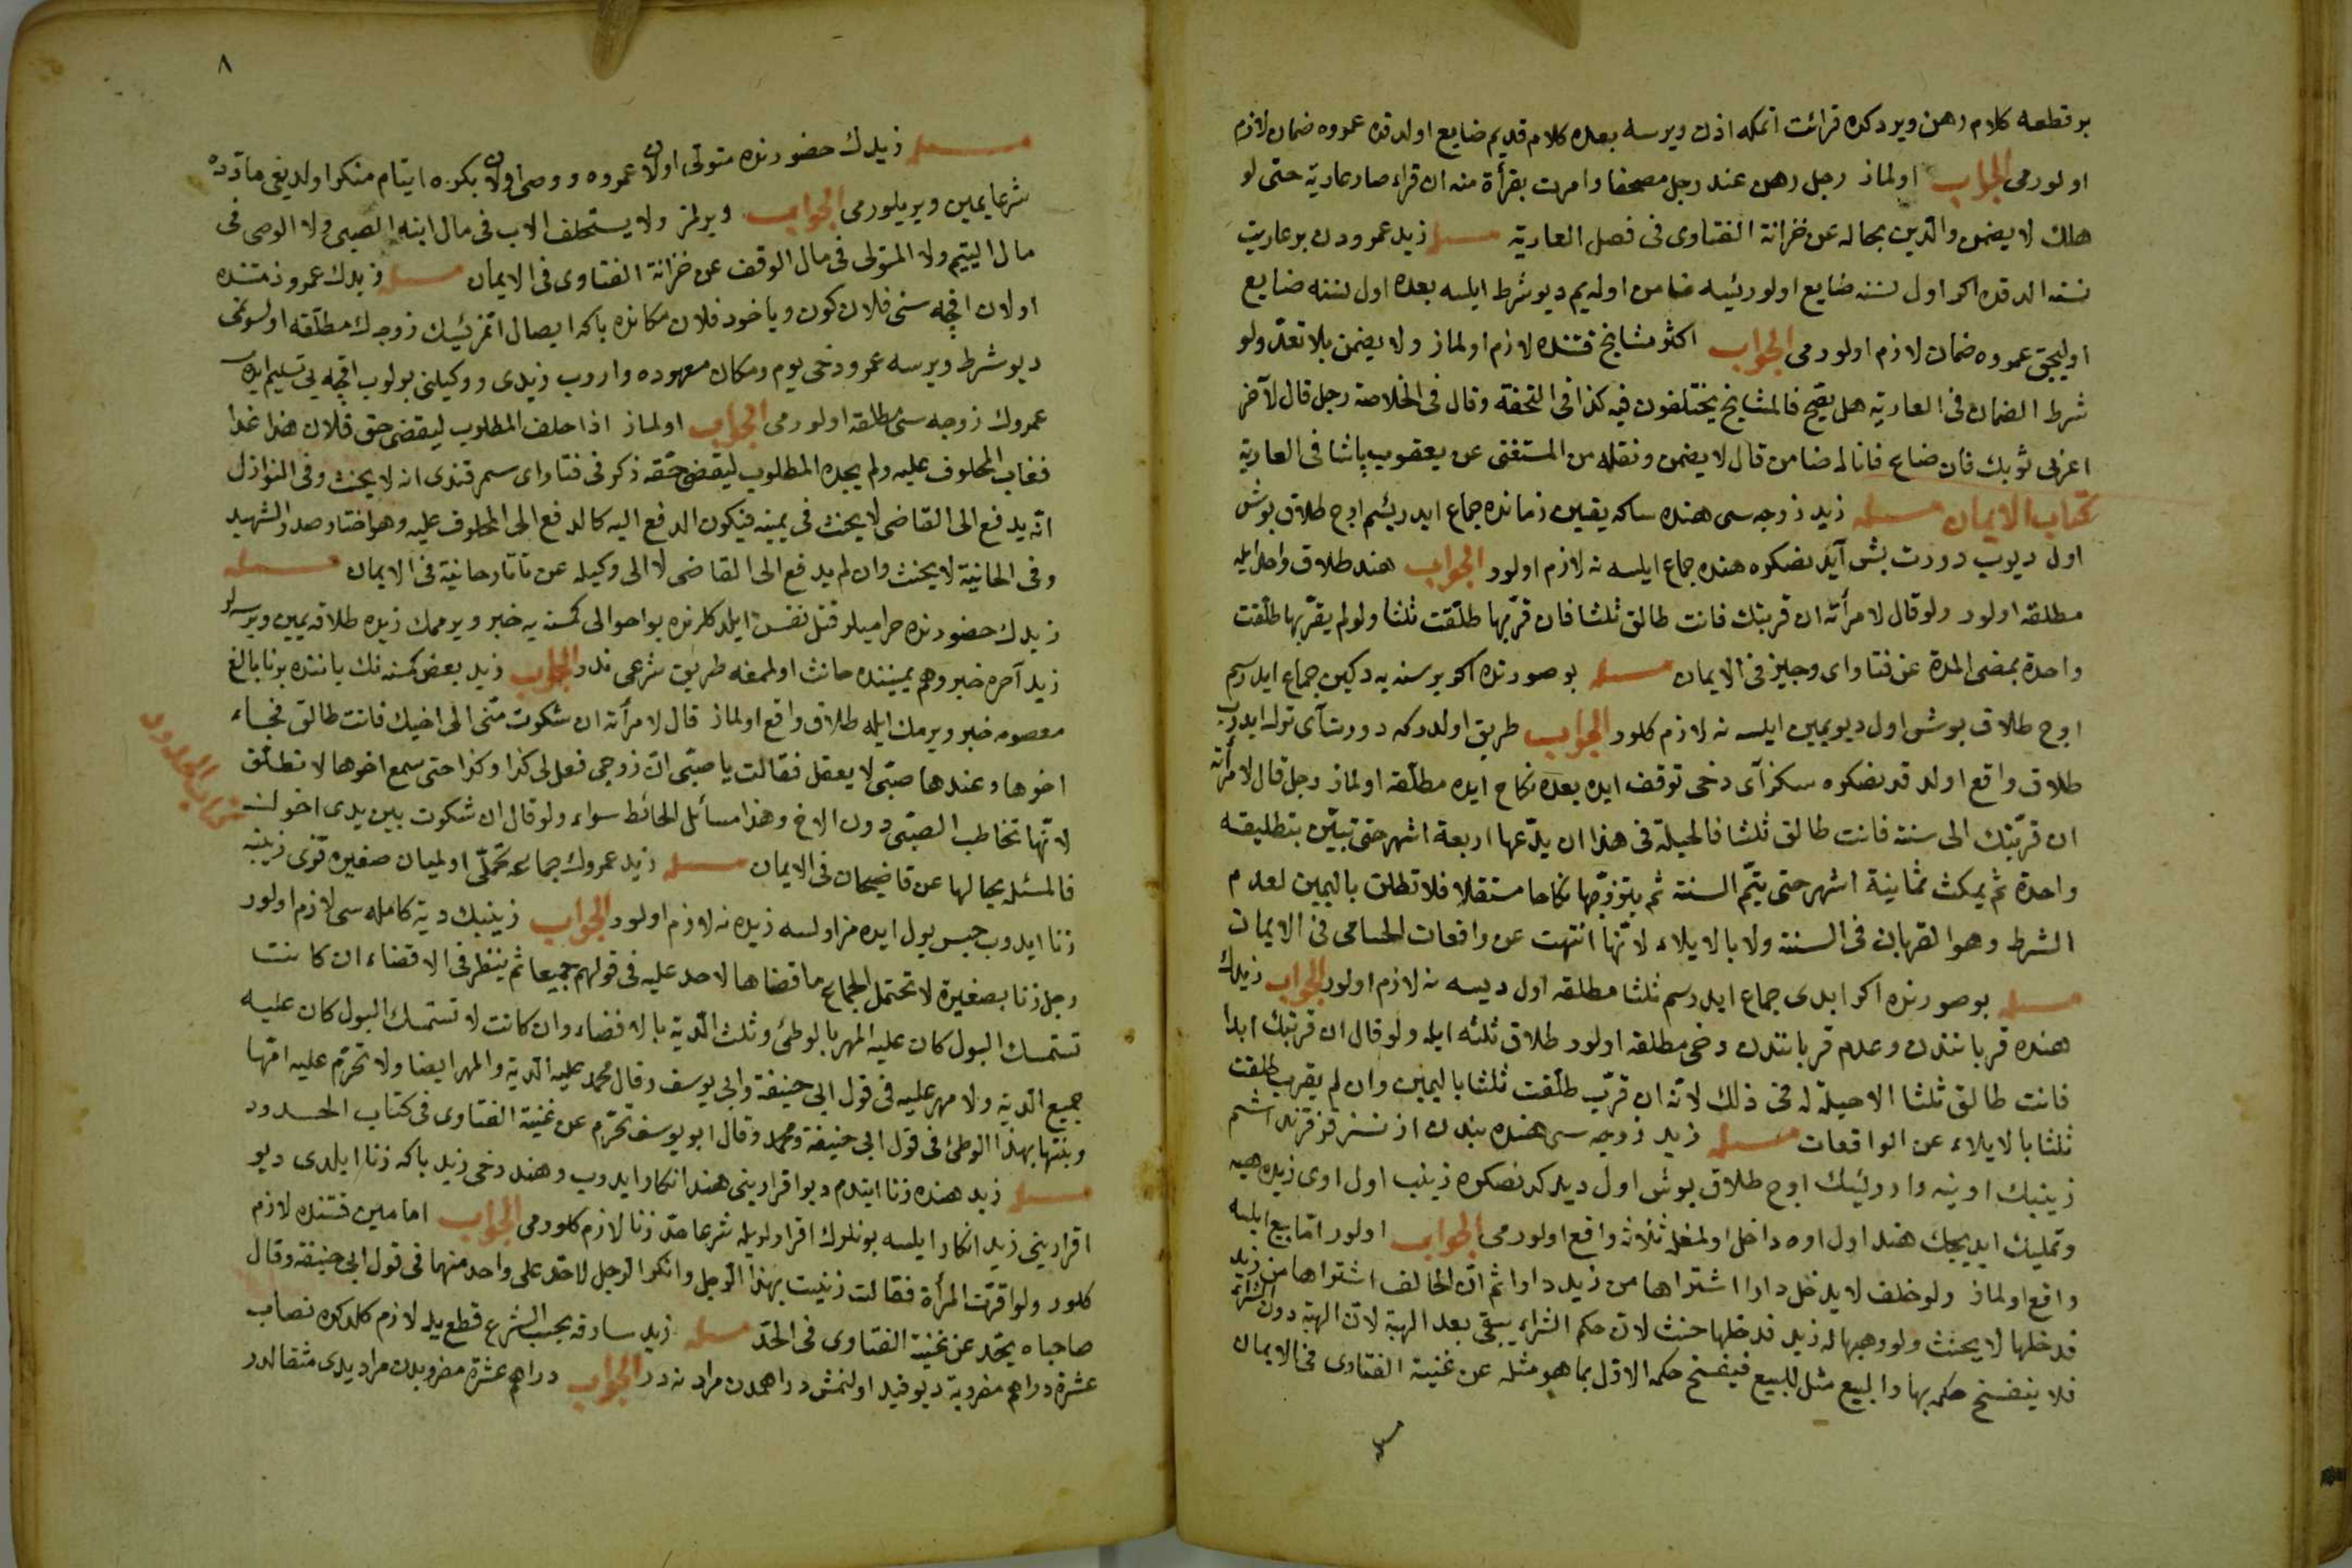 بر قطعه كلام رهن ويردكده قرائت اتمكه اذن ويرسه بعده كلام قديم ضايع اولدقده عمروه ضمان لازم
اولورمى الجواب اولماز رجل رهن عند رجل مصحفا وامرت بقرأة منه ان قراء صار عارية حتى لو
هلك لا يضمن والدين بحاله عن خزانة الفتاوى فى فصل العارية مسئله زيد عمرودن بر عاريت
نسنه الدقده اكر اول نسنه ضايع اولورئيسه ضامن اوليم ديو شرط ايلسه بعده اول نسنه ضايع
اوليجق عمروه ضمان لازم اولورمى الجواب اكثر مشايخ قتنده لازم اولماز ولا يضمن بلا تعد ولو
شرط الضمان فى العارية هل يصح فالمشايخ يختلفون فيه كذا فى التحفة وقال فى الخلاصة رجل قال لآخر
اعرنى ثوبك فان ضاع فانا له ضامن قال لا يضمن ونقله من المستغنى عن يعقوب پاشا فى العارية
كتاب الايمان مسئله زيد زوجه سى هنده ساكه يقين زمانده جماع ايدريسم اوج طلاق بوش
اول ديوب دورت بش آيدنصكره هنده جماع ايلسه نه لازم اولور الجواب هند طلاق واحد ايله
مطلقه اولور ولو قال لامرأته ان قربتك فانت طالق ثلثا فان قربها طلقت ثلثا ولو لم يقربها طلقت
واحدة بمضى المدة عن فتاواى وجيز فى الايمان مسئله بو صورتده اكر بر سنه يه دكين جماع ايدرسم
اوج طلاق بوش اول ديو يمين ايلسه نه لازم كلور الجواب طريق اولدركه دورت آى ترك ايدوب
طلاق واقع اولدقدنصكره سكز آى دخى توقف ايده بعده نكاح ايده مطلقه اولماز رجل قال لامرأته
ان قربتك الى سنة فانت طالق ثلثا فالحيلة فى هذا ان يدعها اربعة اشهر حتى تبين بتطليقه
واحدة ثم يمكث ثمانية اشهر حتى يتم السنة ثم يتزوجها نكاحا مستقلا فلا تطلق باليمين لعدم
الشرط وهو القربان فى السنة ولا بالايلاء لانها انتهت عن واقعات الحسامى فى الايمان
مسئله بو صورتده اكر ابدى جماع ايدرسم ثلثا مطلقه اول ديسه نه لازم اولور الجواب زيدك
هنده قرباننده وعدم قرباننده دخى مطلقه اولور طلاق ثلثه ايله ولو قال ان قربتك ابدا
فانت طالق ثلثا الاحيلة له فى ذلك لانه ان قرب طلقت ثلثا باليمين وان لم يقرب طلقت
ثلثا بالايلاء عن الواقعات مسئله زيد زوجه سى هنده بندن اذنسز قزقرنداشم
زينبك اوينه واررئيسك اوج طلاق بوش اول ديدكدنصكره زينب اول اوى زيده هبه
وتمليك ايديجك هند اول اوه داخل اولمغله ثلاثه واقع اولورمى الجواب اولور اما بيع ايلسه
واقع اولماز ولو حلف لا يدخل دارا اشتراها من زيد دارا ثم ان الحالف اشتراها من زيد
فدخلها لا يحنث ولو وهبها له زيد فدخلها حنث لان حكم الشراء يبقى بعد الهبة لان الهبة دون الشراء
فلا ينفسخ حكمه بها والبيع مثل للبيع فينفسخ حكم الاول بما هو مثله عن غنية الفتاوى فى الايمان
٨
مسئله زيدك حضورنده متولى اولان عمروه ووصى اولان بكره ايتام منكر اولديغى ماده ده
شرعا يمين ويريلورمى الجواب ويرلمز ولا يستحلف الاب فى مال ابنه الصبى ولا الوصى فى
مال اليتيم ولا المتولى فى مال الوقف عن خزانة الفتاوى فى الايمان مسئله زيدك عمرو ذمتنده
اولان اقچه سنى فلان كون وياخود فلان مكانده باكه ايصال اتمزئيسك زوجه ك مطلقه اولسونمى
ديو شرط ويرسه عمرو دخى يوم ومكان معهوده واروب زيدى ووكيلنى بولوب اقچه يى تسليم ايده
عمروك زوجه سى مطلقه اولورمى الجواب اولماز اذا حلف المطلوب ليقضى حق فلان هذا غدا
فغاب المحلوف عليه ولم يجده المطلوب ليقضى حقه ذكر فى فتاواى سمرقندى انه لا يحنث وفى النوازل
انه يدفع الى القاضى لا يحنث فى يمينه فيكون الدفع اليه كالدفع الى المحلوف عليه وهو اختار صدر الشهيد
وفى الخانية لا يحنث وان لم يدفع الى القاضى لا الى وكيله عن تاتارخانية فى الايمان مسئله
زيدك حضورنده حراميلر قتل نفس ايلدكلرنده بو احوالى كمسنه يه خبر ويرممك زيده طلاقه يمين ويرسه لر
زيد آخره خبر وهم يميننده حانث اولممغه طريق شرعى ندر الجواب زيد بعض كمسنه نك ياننده برنا بالغ
معصومه خبر ويرمك ايله طلاق واقع اولماز قال لامرأته ان شكوت منى الى اخيك فانت طالق فجاء
اخوها وعندها صبى لا يعقل فقالت يا صبى ان زوجى فعل لى كذا وكذا حتى سمع اخوها لا تطلق
لانها تخاطب الصبى دون الاخ وهذا مسائل الحائط سواء ولو قال ان شكوت بين يدى اخوك
فالمسئله بحالها عن قاضيخان فى الايمان مسئله زيد عمروك جماعه تحملى اولميان صغيره قزى زينبه
زنا ايدوب حبس بول ايده مز اولسه زيده نه لازم اولور الجواب زينبك دية كامله سى لازم اولور
رجل زنا بصغيرة لا تحتمل الجماع ما قضاها لاحد عليه فى قولهم جميعا ثم ينظر فى الافضاء ان كانت
تستمسك البول كان عليه المهر بالوطئ وثلث الدية بالافضاء وان كانت لا تستمسك البول كان عليه
جميع الدية ولا مهر عليه فى قول ابى حنيفة وابى يوسف وقال محمد عليه الدية والمهر ايضا ولا تحرم عليه امها
وبنتها بهذا الوطئ فى قول ابى حنيفة ومحمد وقال ابو يوسف تحرم عن غنية الفتاوى فى كتاب الحدود
مسئله زيد هنده زنا ايتدم ديو اقرارينى هند انكار ايدوب وهند دخى زيد باكه زنا ايلدى ديو
اقرارينى زيد انكار ايلسه بونلرك اقرارلريله شرعا حد زنا لازم كلورمى الجواب امامين قتنده لازم
كلور ولو اقرت المرأة فقالت زنيت بهذا الرجل وانكر الرجل لاحد على واحد منهما فى قول ابى حنيفة وقال
صاحباه يحد عن غنية الفتاوى فى الحد مسئله زيد سارقه بحسب الشرع قطع يد لازم كلدكده نصاب
عشرة دراهم مضروبة ديو قيد اولنمش دراهمدن مراد نه در الجواب دراهم عشرة مضروبدن مراد يدى مثقالدر
كتاب الحدود